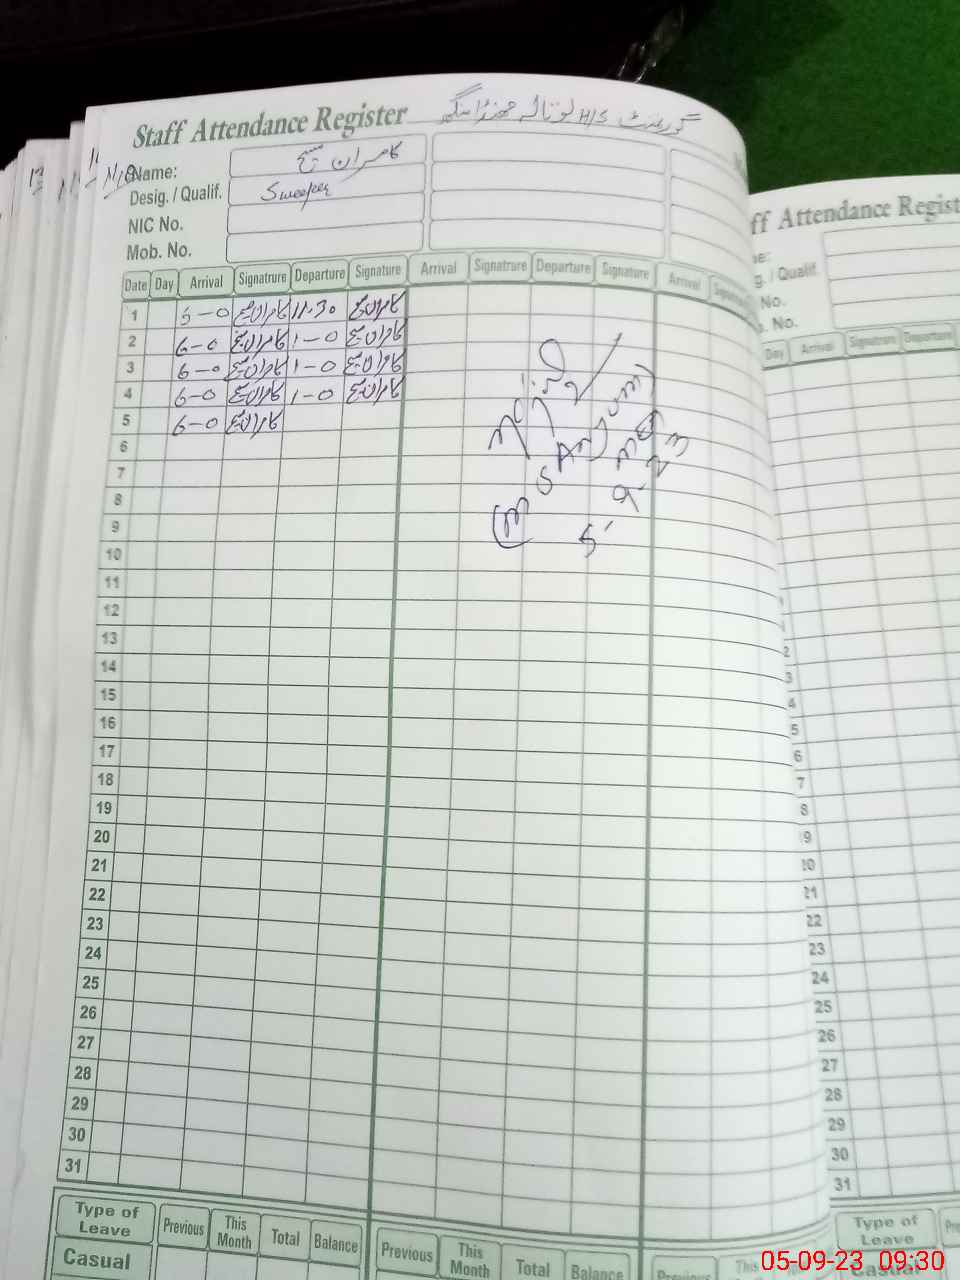 Staff Attendance Register گورنمنٹ H/S
Name: کامران مسیح
Desig. / Qualif. Sweeper
NIC No.
Mob. No.
Date Day Arrival Signatrure Departure Signature Arrival Signatrure Departure Signature Arrival
1 5-0 کامران 11.30 کامران
2 6-0 کامران 1-0 کامران
3 6-0 کامران 1-0 کامران
4 6-0 کامران 1-0 کامران
5 6-0 کامران
6
7
8
9
10
11
12
13
14
15
16
17
18
19
20
21
22
23
24
25
26
27
28
29
30
31
Type of Leave Previous This Month Total Balance Previous This Month Total Balance Previous This
Casual
ff Attendance Regist
g. / Qualif.
No.
. No.
Day Arrival Signatrure Departure
2
3
4
5
6
7
8
9
10
21
22
23
24
25
26
27
28
29
30
31
Type of Leave
Casual
05-09-23 09:30